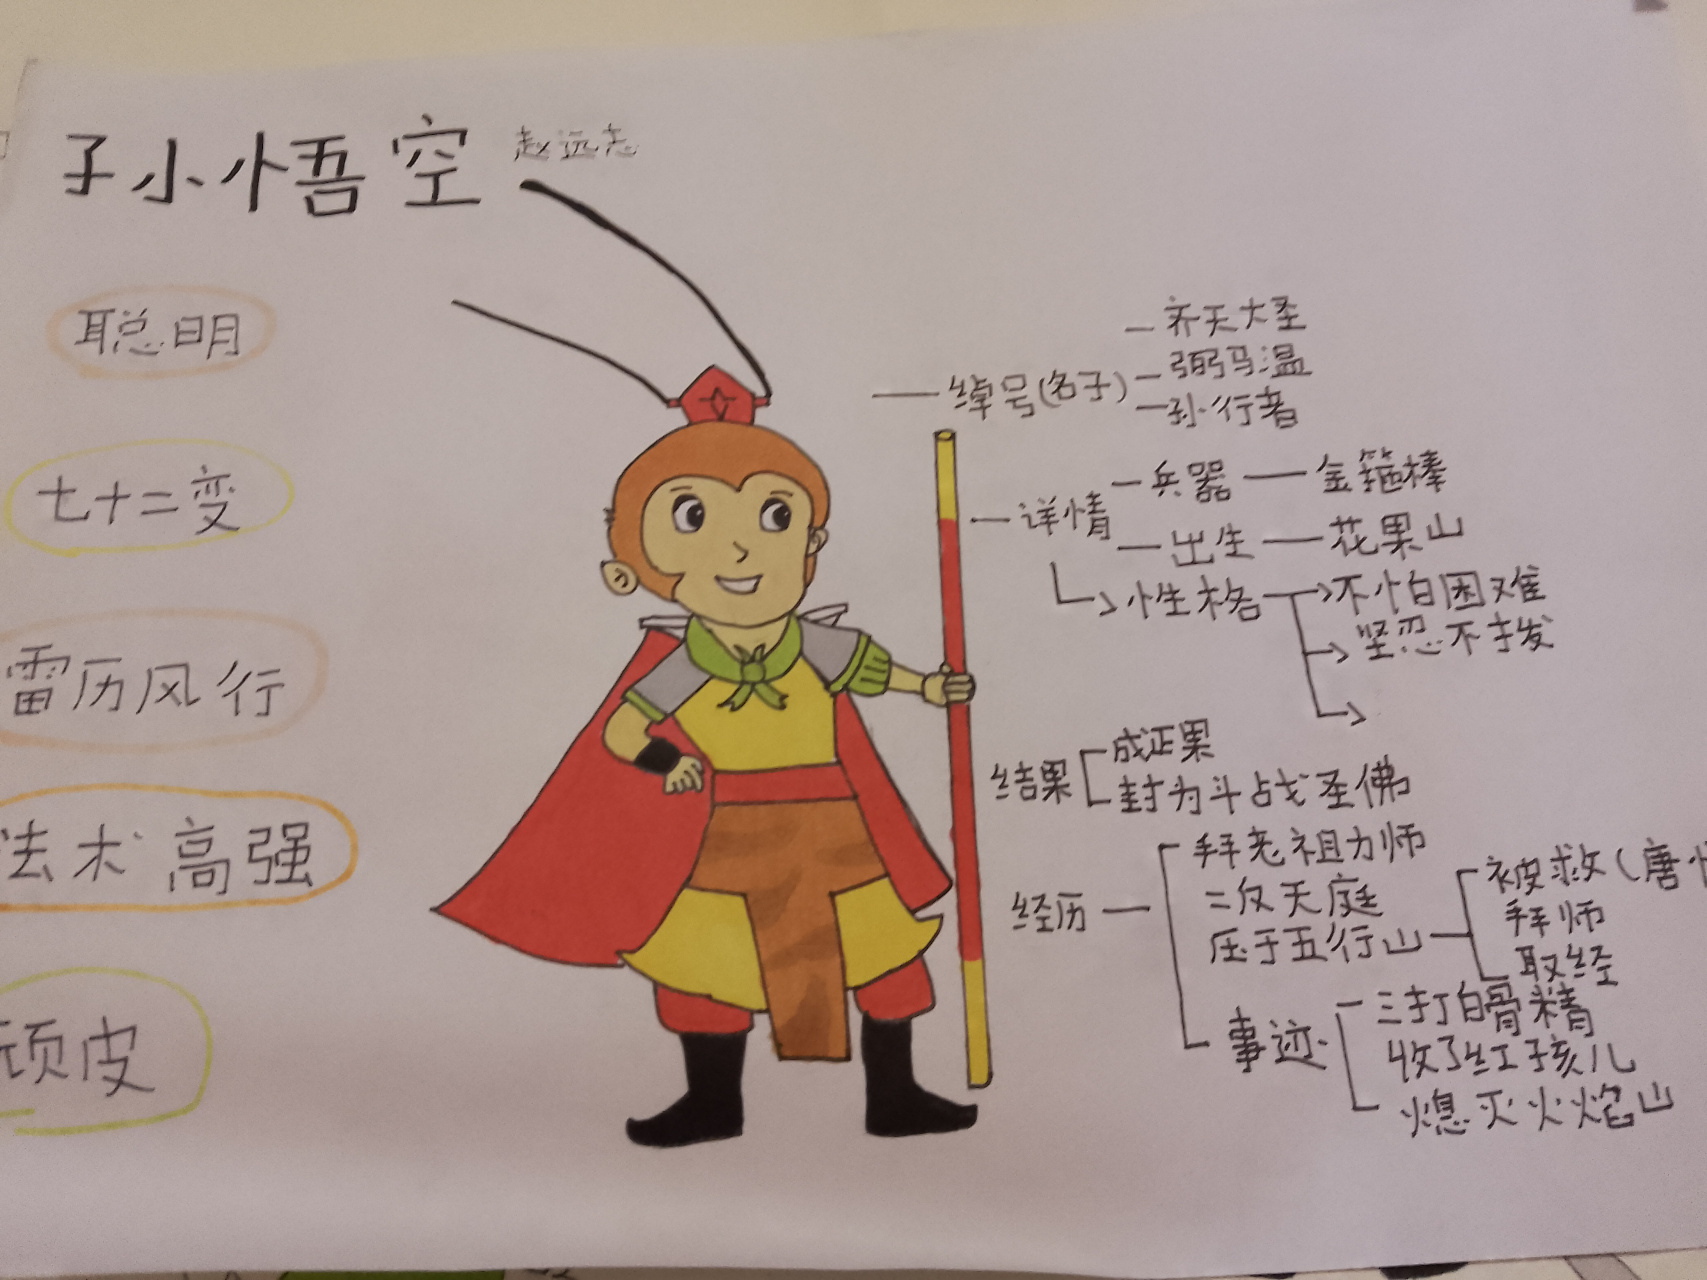 子小悟空 赵远志
聪明
七十二变
雷历风行
法术高强
顽皮
绰号(名子)
齐天大圣
弼马温
孙行者
详情
兵器 金箍棒
出生 花果山
性格 不怕困难
坚忍不拔
结果
成正果
封为斗战圣佛
经历
拜老祖为师
二反天庭
压于五行山
被救(唐
拜师
取经
事迹
三打白骨精
收了红孩儿
熄灭火焰山